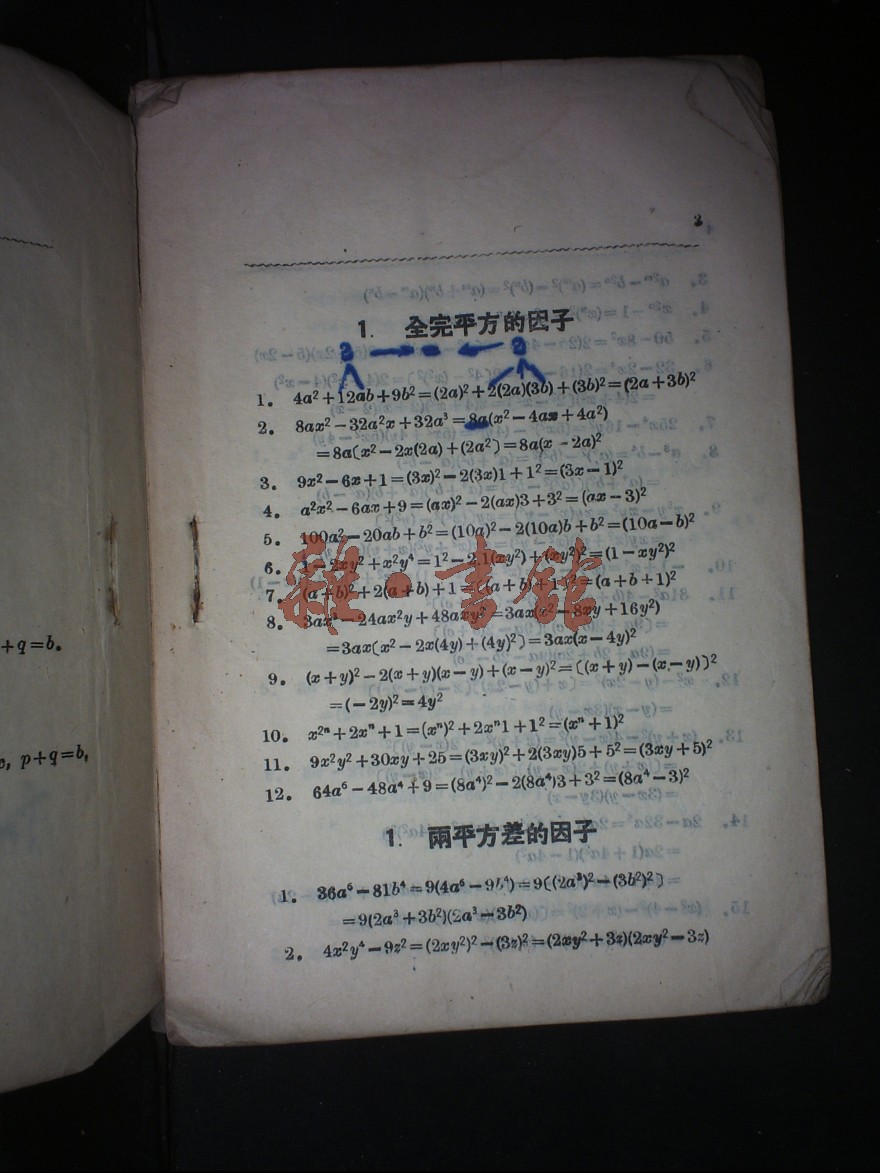 3
1. 全完平方的因子
1。 4a²+12ab+9b²=(2a)²+2(2a)(3b)+(3b)²=(2a+3b)²
2。 8ax²-32a²x+32a³=8a(x²-4ax+4a²)
=8a〔x²-2x(2a)+(2a²〕=8a(x-2a)²
3。 9x²-6x+1=(3x)²-2(3x)1+1²=(3x-1)²
4。 a²x²-6ax+9=(ax)²-2(ax)3+3²=(ax-3)²
5。 100a²-20ab+b²=(10a)²-2(10a)b+b²=(10a-b)²
6。 1-2xy²+x²y⁴=1²-2.1(xy²)+(xy²)²=(1-xy²)²
7。 (a+b)²+2(a+b)+1=〔(a+b)+1〕²=(a+b+1)²
8。 3ax³-24ax²y+48axy²=3ax(x²-8xy+16y²)
=3ax〔x²-2x(4y)+(4y)²〕=3ax(x-4y)²
9。 (x+y)²-2(x+y)(x-y)+(x-y)²=〔(x+y)-(x-y)〕²
=(-2y)²=4y²
10。 x²ⁿ+2xⁿ+1=(xⁿ)²+2xⁿ1+1²=(xⁿ+1)²
11。 9x²y²+30xy+25=(3xy)²+2(3xy)5+5²=(3xy+5)²
12。 64a⁶-48a⁴+9=(8a⁴)²-2(8a⁴)3+3²=(8a⁴-3)²
1. 兩平方差的因子
1。 36a⁶-81b⁴=9(4a⁶-9b⁴)=9〔(2a³)²-(3b²)²〕
=9(2a³+3b²)(2a³-3b²)
2。 4x²y⁴-9z²=(2xy²)²-(3z)²=(2xy²+3z)(2xy²-3z)
+q=b。
p+q=b,
雜·書館